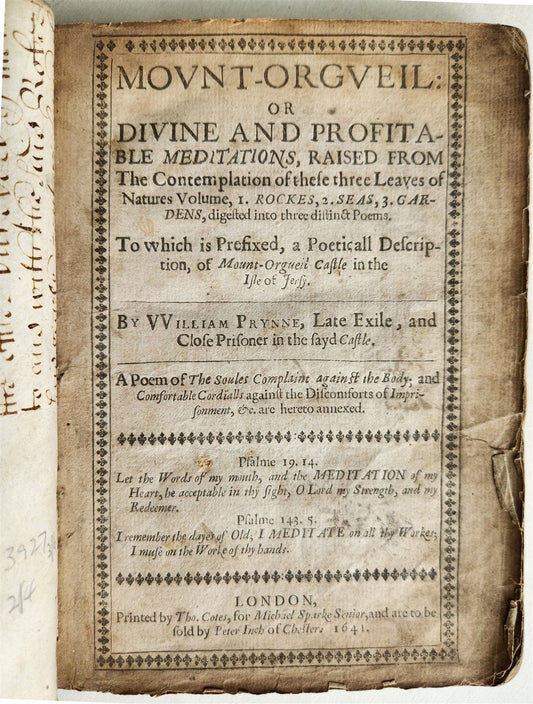 MOVNT-ORGVEIL:
OR
DIVINE AND PROFITA-
BLE MEDITATIONS, RAISED FROM
The Contemplation of theſe three Leaves of
Natures Volume, 1. ROCKES, 2. SEAS, 3. GAR-
DENS, digeſted into three diſtinct Poems.
To which is Prefixed, a Poeticall Deſcrip-
tion, of Mount-Orgueil Caſtle in the
Iſle of Jerſy.
BY VVILLIAM PRYNNE, Late Exile, and
Cloſe Priſoner in the ſayd Caſtle.
A Poem of The Soules Complaint againſt the Body; and
Comfortable Cordialls againſt the Diſcomforts of Impri-
ſonment, &c. are hereto annexed.
Pſalme 19. 14.
Let the Words of my mouth, and the MEDITATION of my
Heart, be acceptable in thy ſight, O Lord my Strength, and my
Redeemer.
Pſalme 143. 5.
I remember the dayes of Old, I MEDITATE on all thy Workes;
I muſe on the Worke of thy hands.
LONDON,
Printed by Tho. Cotes, for Michael Sparke Senior, and are to be
ſold by Peter Inch of Cheſter. 1641.
3927